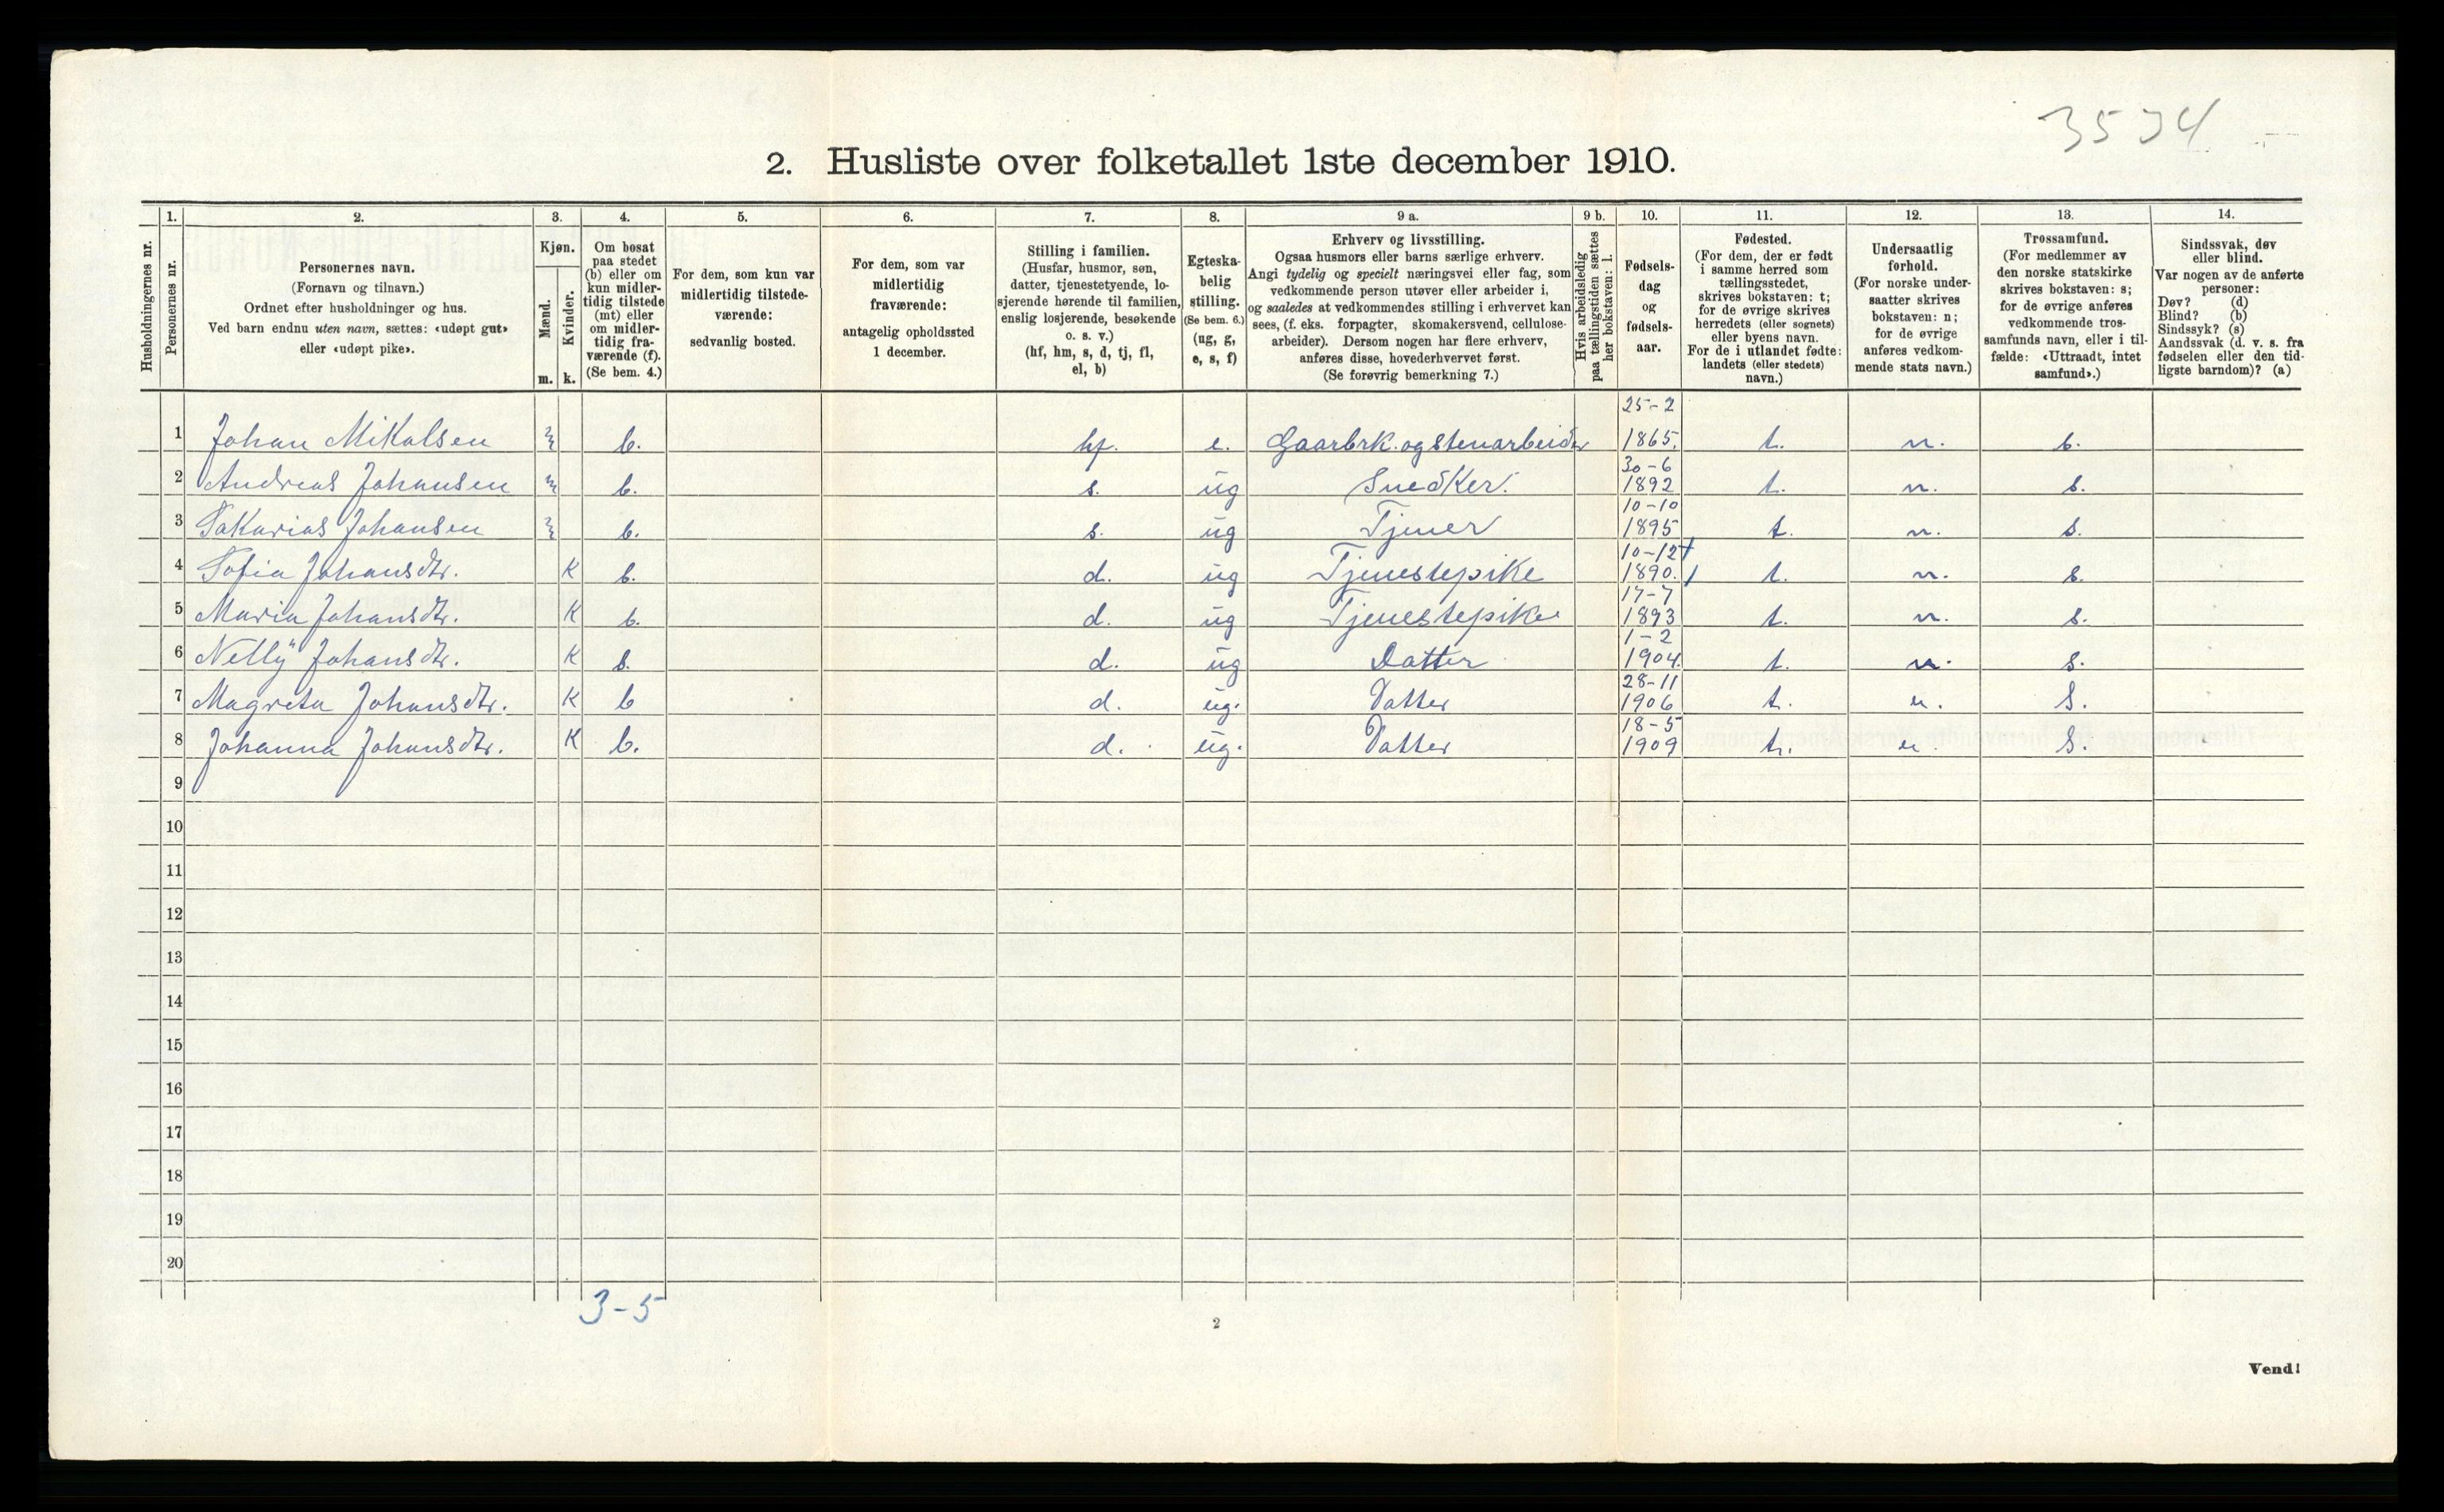 3534
2. Husliste over folketallet 1ste december 1910.
Husholdningernes nr.
1.
Personernes nr.
2.
Personernes navn.
(Fornavn og tilnavn.)
Ordnet efter husholdninger og hus.
Ved barn endnu uten navn, sættes: «udøpt gut»
eller «udøpt pike».
3.
Kjøn.
Mænd.
m.
Kvinder.
k.
4.
Om bosat
paa stedet
(b) eller om
kun midler-
tidig tilstede
(mt) eller
om midler-
tidig fra-
værende (f).
(Se bem. 4.)
5.
For dem, som kun var
midlertidig tilstede-
værende:
sedvanlig bosted.
6.
For dem, som var
midlertidig
fraværende:
antagelig opholdssted
1 december.
7.
Stilling i familien.
(Husfar, husmor, søn,
datter, tjenestetyende, lo-
sjerende hørende til familien,
enslig losjerende, besøkende
o. s. v.)
(hf, hm, s, d, tj, fl,
el, b)
8.
Egteska-
belig
stilling.
(Se bem. 6.)
(ug, g,
e, s, f)
9 a.
Erhverv og livsstilling.
Ogsaa husmors eller barns særlige erhverv.
Angi tydelig og specielt næringsvei eller fag, som
vedkommende person utøver eller arbeider i,
og saaledes at vedkommendes stilling i erhvervet kan
sees, (f. eks. forpagter, skomakersvend, cellulose-
arbeider). Dersom nogen har flere erhverv,
anføres disse, hovederhvervet først.
(Se forøvrig bemerkning 7.)
9 b.
Hvis arbeidsledig
paa tællingstiden sættes
her bokstaven: l.
10.
Fødsels-
dag
og
fødsels-
aar.
11.
Fødested.
(For dem, der er født
i samme herred som
tællingsstedet,
skrives bokstaven: t;
for de øvrige skrives
herredets (eller sognets)
eller byens navn.
For de i utlandet fødte:
landets (eller stedets)
navn.)
12.
Undersaatlig
forhold.
(For norske under-
saatter skrives
bokstaven: n;
for de øvrige
anføres vedkom-
mende stats navn.)
13.
Trossamfund.
(For medlemmer av
den norske statskirke
skrives bokstaven: s;
for de øvrige anføres
vedkommende tros-
samfunds navn, eller i til-
fælde: «Uttraadt, intet
samfund».)
14.
Sindssvak, døv
eller blind.
Var nogen av de anførte
personer:
Døv? (d)
Blind? (b)
Sindssyk? (s)
Aandssvak (d. v. s. fra
fødselen eller den tid-
ligste barndom)? (a)
1 Johan Mikalsen m b. hf. e. Gaarbrk. og stenarbeider 25-2 1865. t. n. s.
2 Andreas Johansen m b. s. ug Snedker. 30-6 1892 t. n. s.
3 Sakarias Johansen m b. s. ug Tjener 10-10 1895 t. n. s.
4 Sofia Johansdtr. K b. d. ug Tjenestepike 10-12 1890. t. n. s.
5 Maria Johansdtr. K b. d. ug Tjenestepike 17-7 1893 t. n. s.
6 Nelly Johansdtr. K b. d. ug Datter 1-2 1904. t. n. s.
7 Magreta Johansdtr. K b d. ug. Datter 28-11 1906 t. n. s.
8 Johanna Johansdtr. K b. d. ug. Datter 18-5 1909 t. n. s.
9
10
11
12
13
14
15
16
17
18
19
20
3-5
2
Vend!